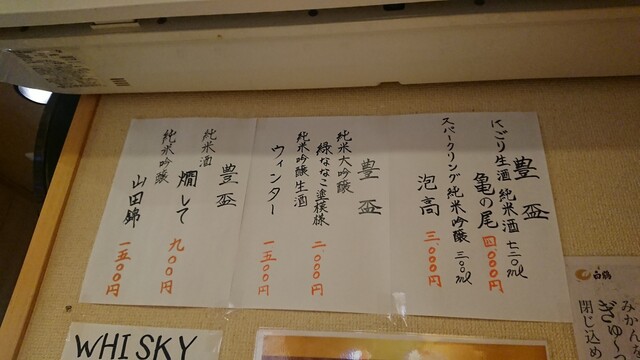 豊盃
にごり生酒 純米酒 七二〇ml
亀の尾 四、〇〇〇円
スパークリング純米吟醸 三〇〇ml
泡高 三、〇〇〇円
豊盃
純米大吟醸
緑ななこ塗模様 二、〇〇〇円
純米吟醸生酒
ウィンター 一五〇〇円
豊盃
純米酒
燗して 九〇〇円
純米吟醸
山田錦 一五〇〇円
WHISKY
白鶴
みかん
ぎゅ〜
閉じ込め